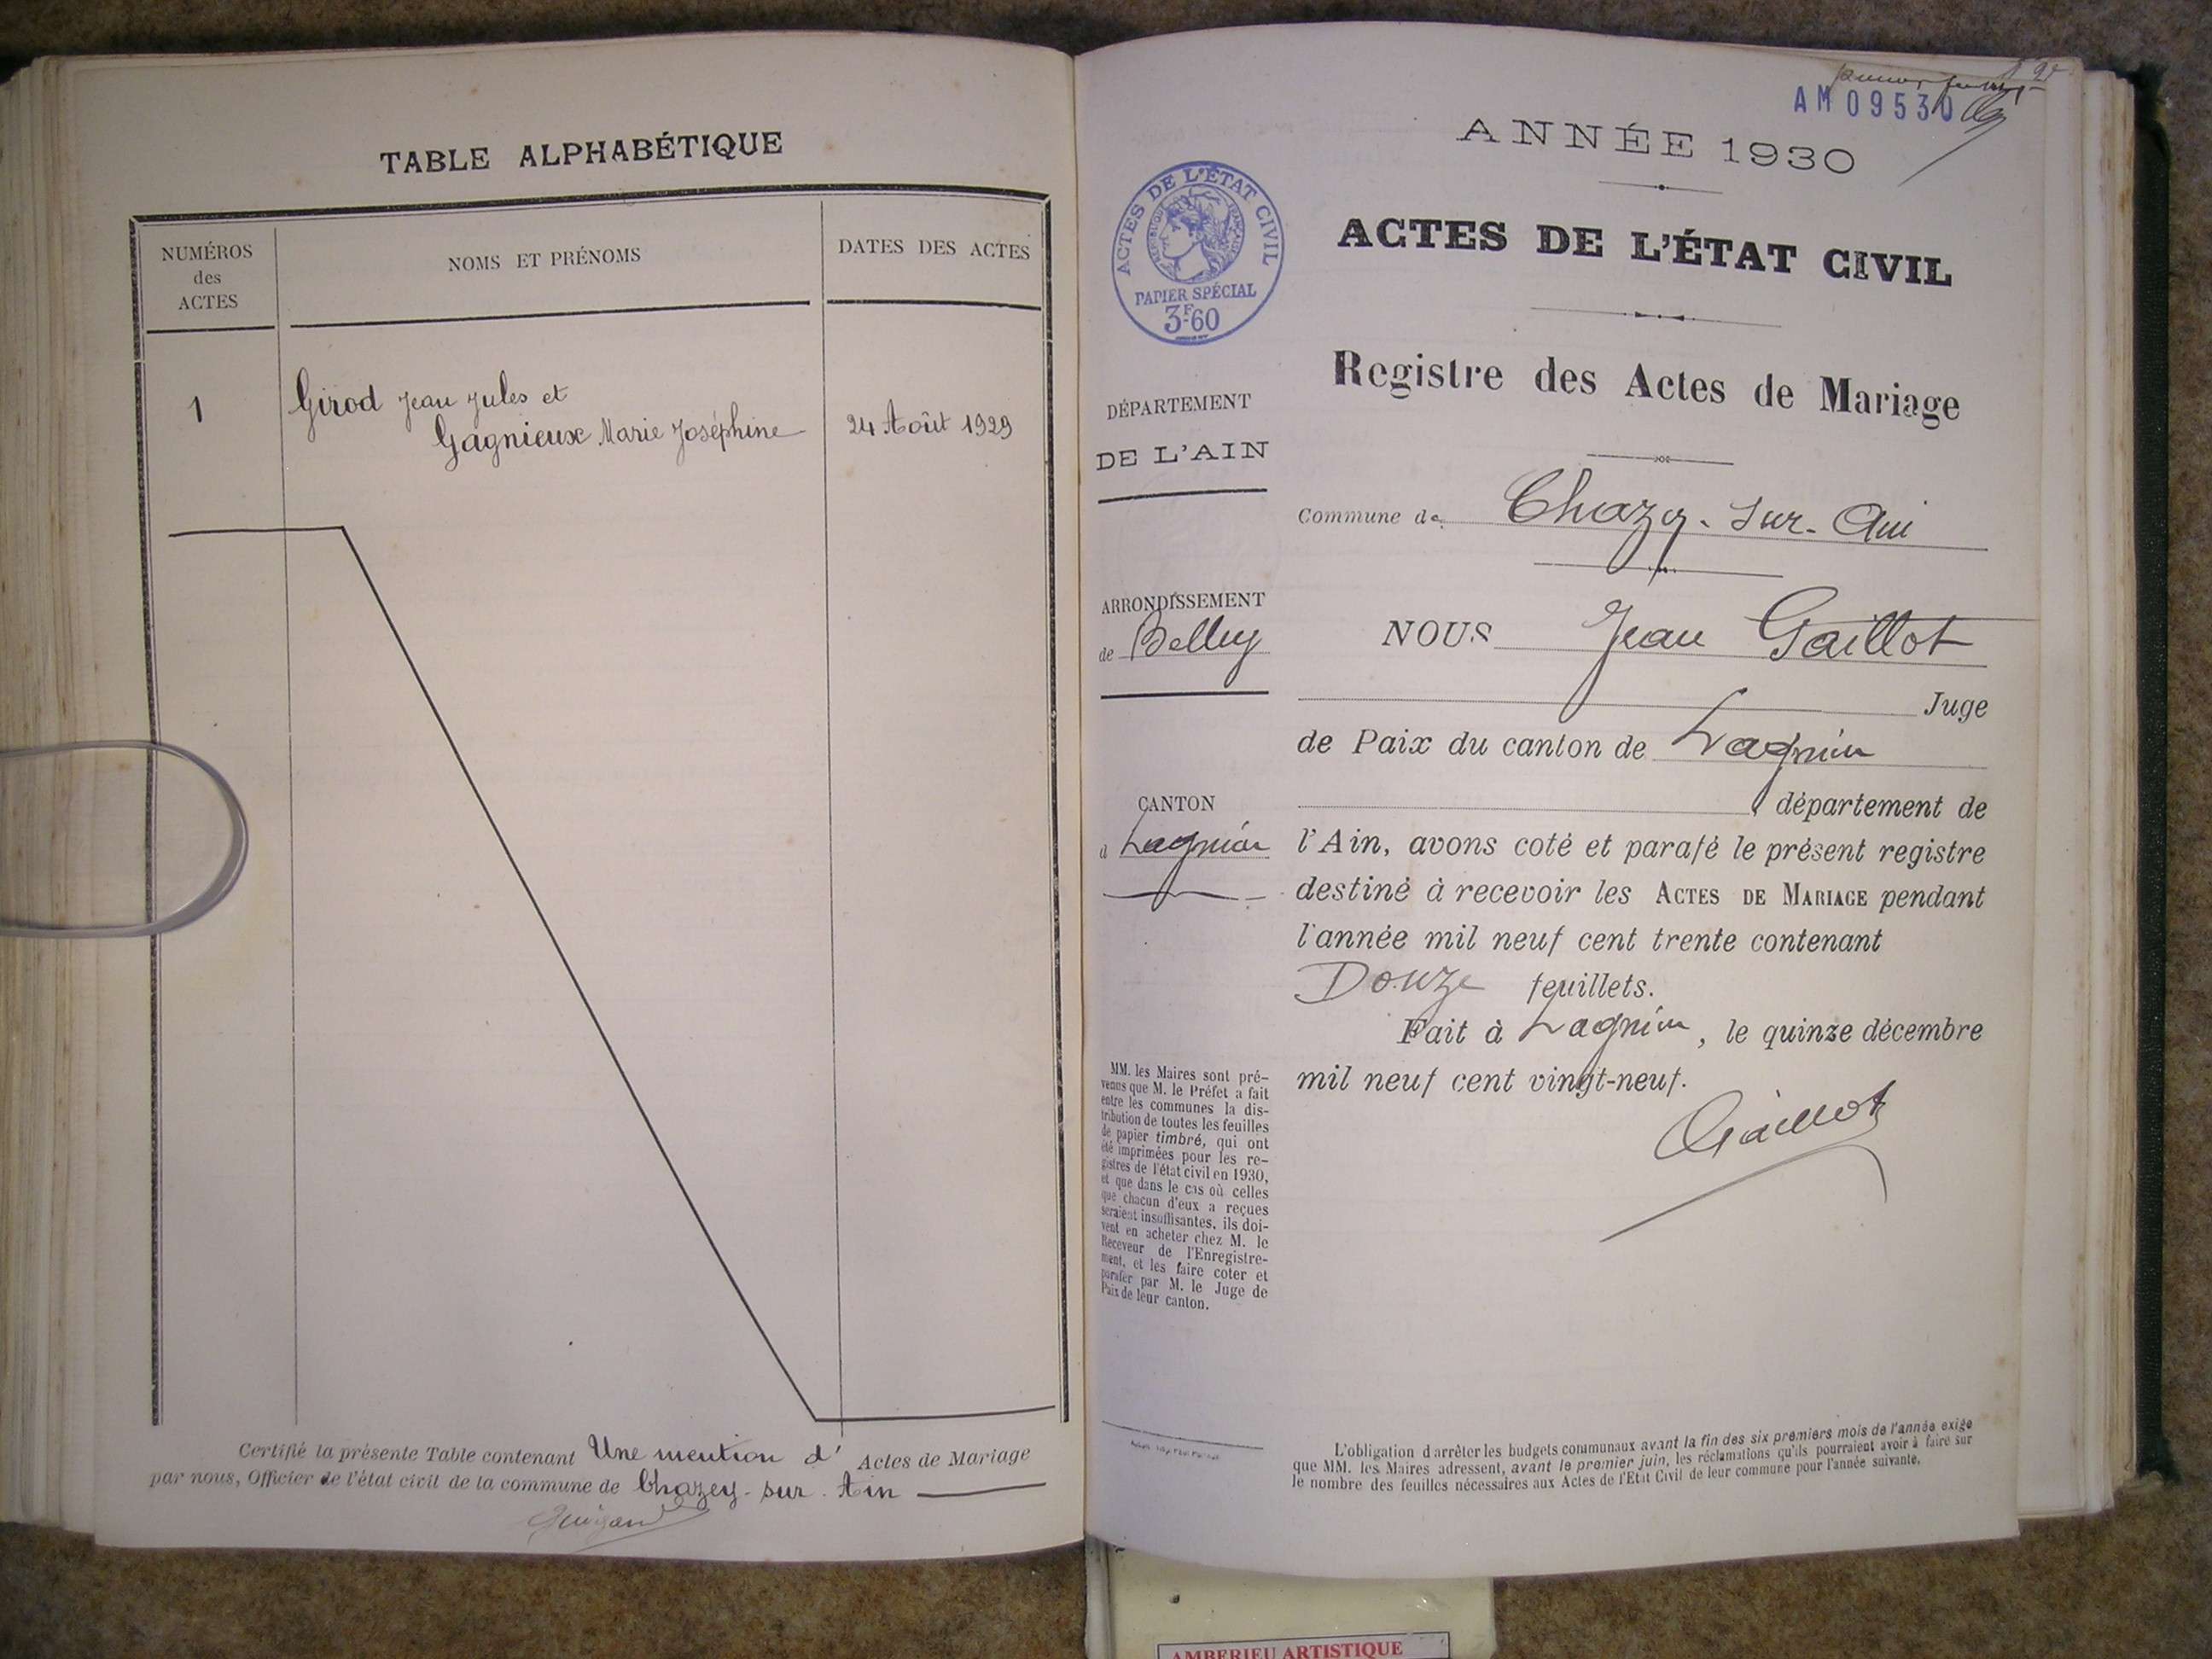 TABLE ALPHABÉTIQUE
NUMÉROS
des
ACTES
NOMS ET PRÉNOMS
DATES DES ACTES
1
Girod Jean Jules et
Gagnieux Marie Joséphine
24 Août 1929
Certifié la présente Table contenant Une mention d' Actes de Mariage
par nous, Officier de l'état civil de la commune de Chazey-sur-Ain
AM 09530
ANNÉE 1930
ACTES DE L'ÉTAT CIVIL
RÉPUBLIQUE FRANÇAISE
PAPIER SPÉCIAL
3F60
ACTES DE L'ÉTAT CIVIL
Registre des Actes de Mariage
DÉPARTEMENT
DE L'AIN
ARRONDISSEMENT
de Belley
CANTON
d Lagnieu
MM. les Maires sont pré-
venus que M. le Préfet a fait
entre les communes la dis-
tribution de toutes les feuilles
de papier timbré, qui ont
été imprimées pour les re-
gistres de l'état civil en 1930,
et que dans le cas où celles
que chacun d'eux a reçues
seraient insuffisantes, ils doi-
vent en acheter chez M. le
Receveur de l'Enregistre-
ment, et les faire coter et
parafer par M. le Juge de
Paix de leur canton.
Commune de Chazey-sur-Ain
NOUS Jean Gaillot
Juge
de Paix du canton de Lagnieu
département de
l'Ain, avons coté et parafé le présent registre
destiné à recevoir les ACTES DE MARIAGE pendant
l'année mil neuf cent trente contenant
Douze feuillets.
Fait à Lagnieu, le quinze décembre
mil neuf cent vingt-neuf.
Gaillot
L'obligation d'arrêter les budgets communaux avant la fin des six premiers mois de l'année exige
que MM. les Maires adressent, avant le premier juin, les réclamations qu'ils pourraient avoir à faire sur
le nombre des feuilles nécessaires aux Actes de l'Etat Civil de leur commune pour l'année suivante.
AMBERIEU ARTISTIQUE